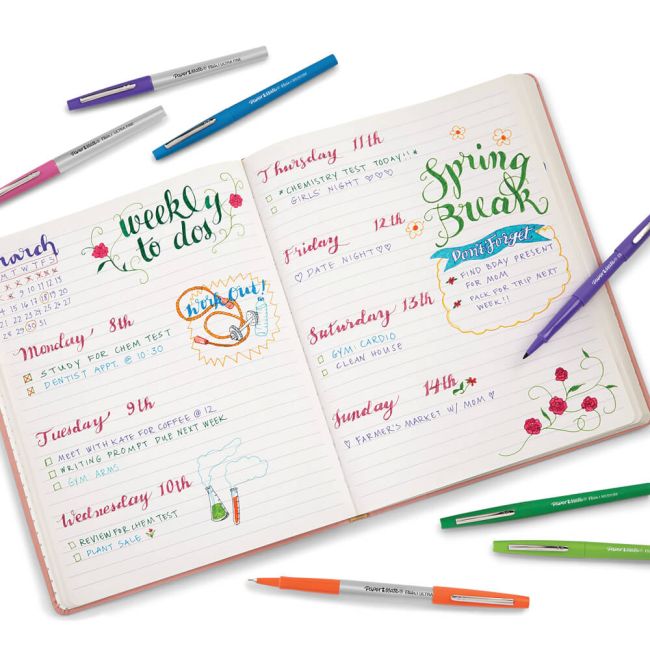 PAPER MATE® FLAIR / ULTRA FINE
PAPER MATE® FLAIR
PAPER MATE® FLAIR / ULTRA FINE
March
M T W T F S S
29 30 31
weekly
to dos
Work Out!
Monday 8th
STUDY FOR CHEM TEST
DENTIST APPT. @ 10:30
Tuesday 9th
MEET WITH KATE FOR COFFEE @ 12
WRITING PROMPT DUE NEXT WEEK
GYM: ARMS
Wednesday 10th
REVIEW FOR CHEM TEST
PLANT SALE
Thursday 11th
*CHEMISTRY TEST TODAY!!*
GIRLS NIGHT ♡♡♡
Friday 12th
♡ DATE NIGHT ♡♡
Saturday 13th
GYM: CARDIO
CLEAN HOUSE
Sunday 14th
♡ FARMER'S MARKET W/ MOM ♡
Spring
Break
Don't Forget
FIND BDAY PRESENT
FOR MOM
PACK FOR TRIP NEXT
WEEK!!
PAPER MATE® FLAIR
PAPER MATE® FLAIR
PAPER MATE® FLAIR
PAPER MATE® FLAIR / ULTRA